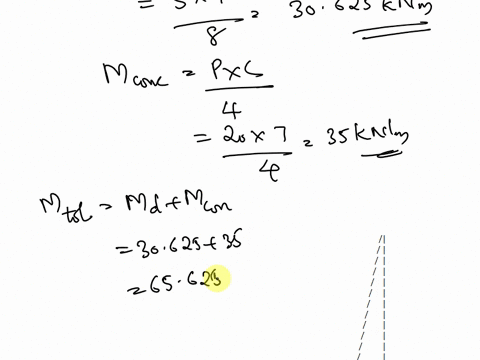 = 5 × 7 / 8 = 30.625 kNm
Mconc = P×L / 4
= 20 × 7 / 4 = 35 kNm
Mtot = Md + Mcon
= 30.625 + 35
= 65.625